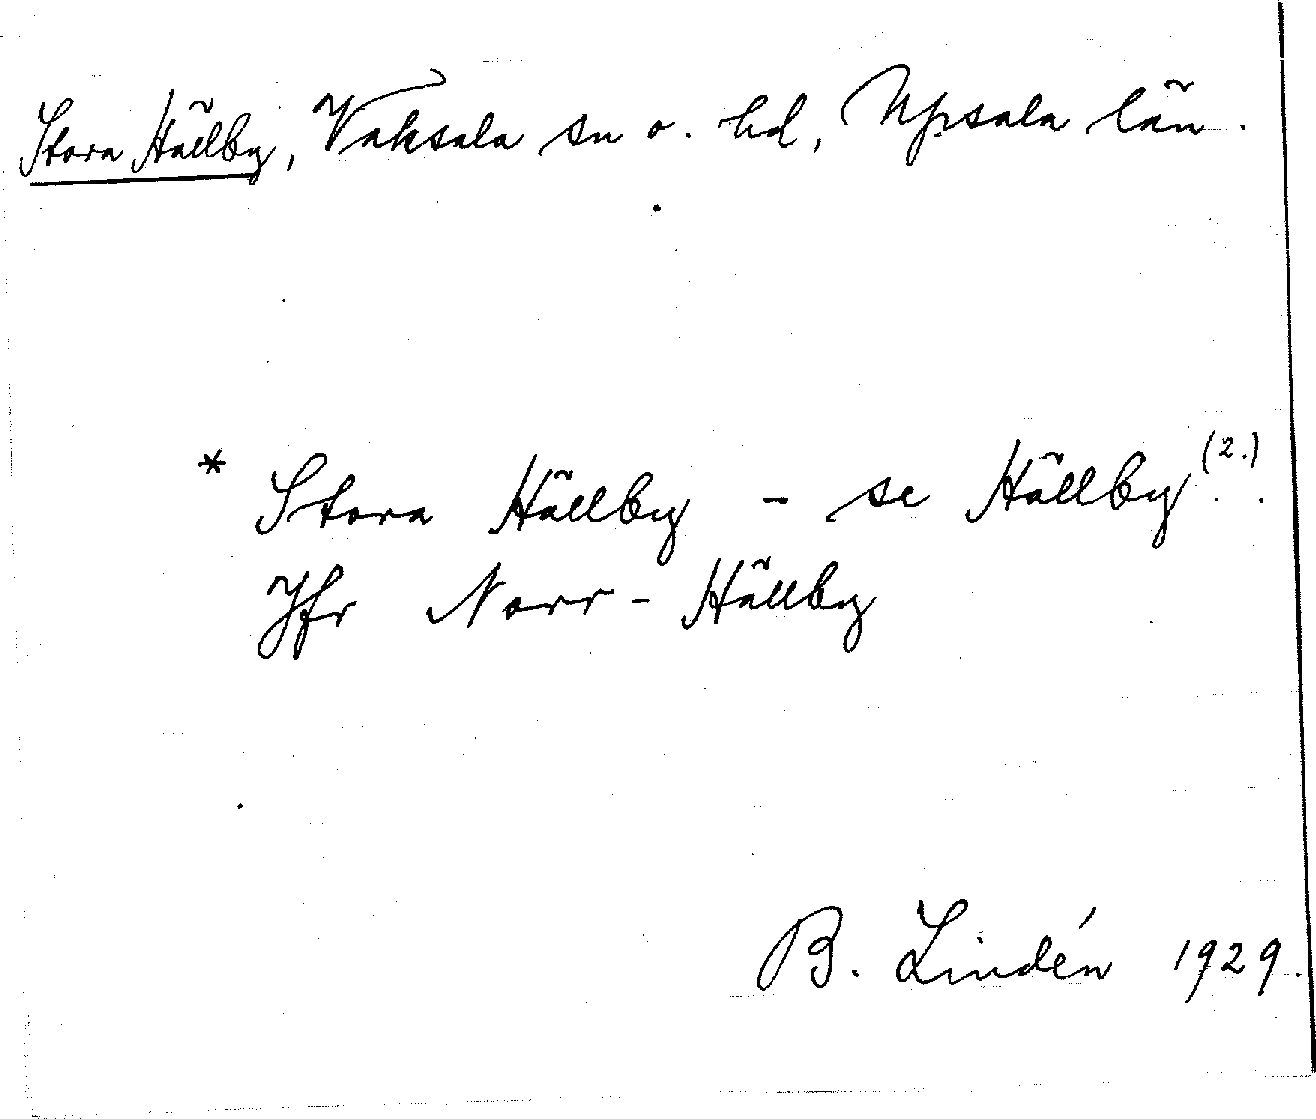 Stora Hällby, Vaksala sn o. hd, Upsala län.
* Stora Hällby - se Hällby (2.).
Jfr Norr-Hällby
B. Lindén 1929.